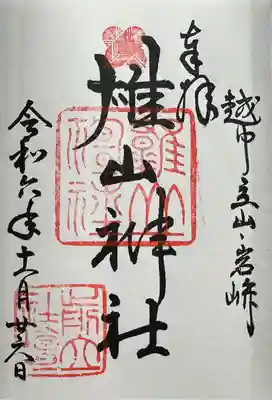 奉拝
越中立山・岩峅
雄山神社
令和六年十一月廿六日